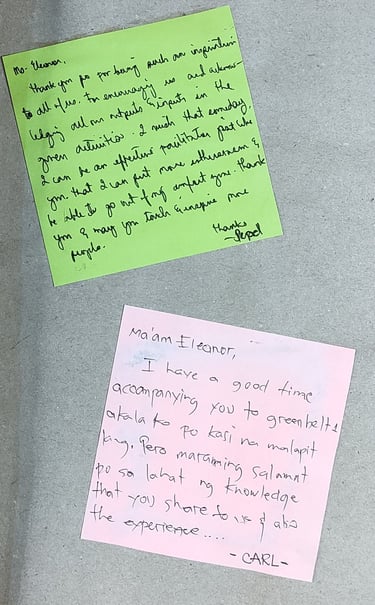 Ms. Eleanor,
Thank you po for being such an inspiration
to all of us. For encouraging us and acknow-
ledging all our outputs & inputs in the
given activities. I wish that someday,
I can be an effective facilitator just like
you, that I can put more enthusiasm &
be able to go out of my comfort zone. Thank
you & may you touch & inspire more
people.
Thanks
-Pepel
Ma'am Eleanor,
I have a good time
accompanying you to greenbelt 1
akala ko po kasi na malapit
lang. Pero maraming salamat
po sa lahat ng knowledge
that you share to us & also
the experience....
- CARL -